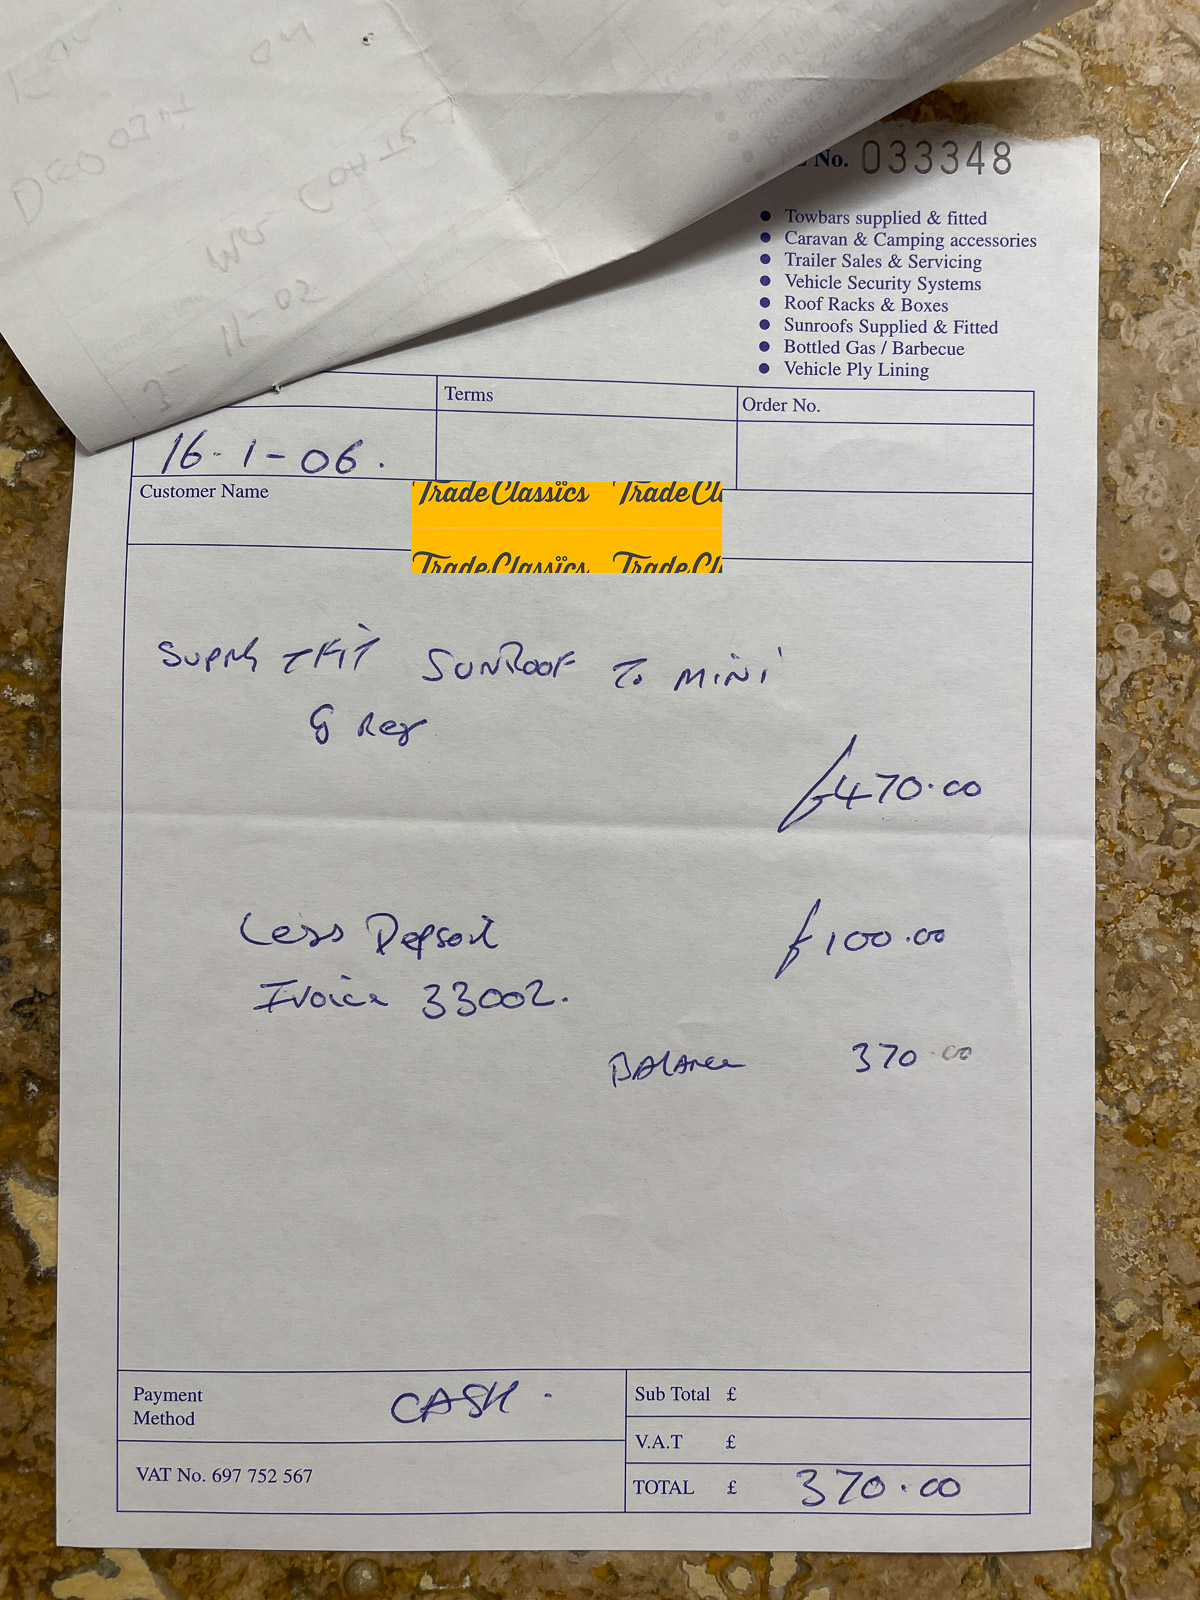 No. 033348
Towbars supplied & fitted
Caravan & Camping accessories
Trailer Sales & Servicing
Vehicle Security Systems
Roof Racks & Boxes
Sunroofs Supplied & Fitted
Bottled Gas / Barbecue
Vehicle Ply Lining
Terms
Order No.
16-1-06.
Customer Name
TradeClassics TradeCl
TradeClassics TradeCl
SUPPLY + FIT SUNROOF To MINI
G Reg
£470.00
Less Depsoit £100.00
Ivoice 33002.
BALANCE 370.00
Payment
Method
CASH.
Sub Total £
V.A.T £
VAT No. 697 752 567
TOTAL £ 370.00